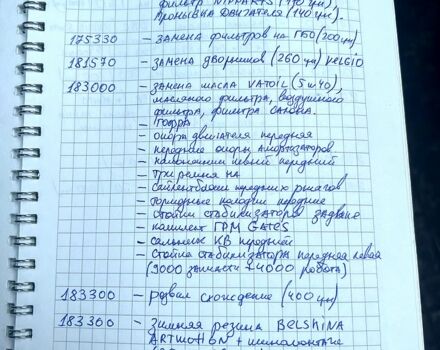 фильтр NIPPARTS (190 грн),
промывка двигателя (140 грн).
175330 – замена фильтров на ГБО (200 грн)
181570 – замена дворников (260 грн) KELGIO
183000 – замена масла VATOIL (5w40),
масляного фильтра, воздушного
фильтра, фильтра салона.
– гофра
– опора двигателя передняя
– передние опоры амортизаторов
– наконечник левый передний
– три ремня на
– сайлентблоки передних рычагов
– тормозные колодки передние
– стойки стабилизаторов задние
– комплект ГРМ GATES
– сальник КВ передний
– стойка стабилизатора передняя левая
(9000 запчасти + 4000 работа)
183300 – развал схождение (400 грн)
183300 – зимняя резина BELSHINA
ARTMOTION + шиномонтаж